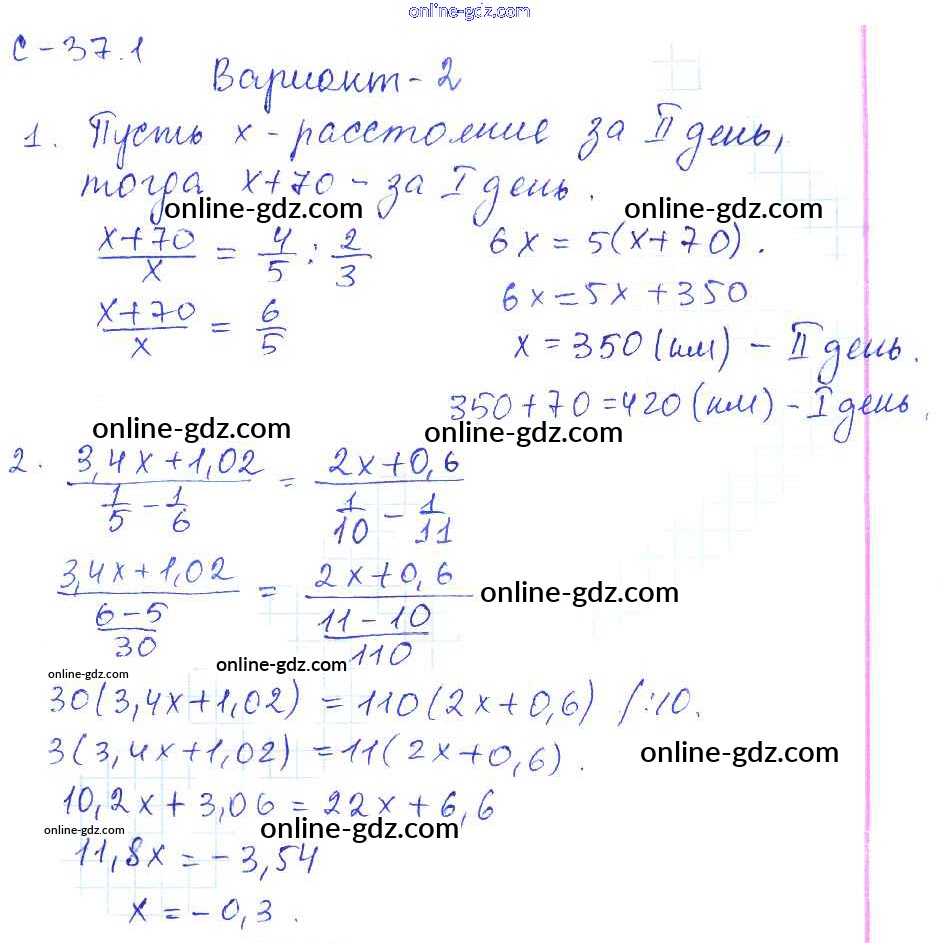 online-gdz.com
С-37.1
Вариант-2
1. Пусть x - расстояние за II день,
тогда x+70 - за I день.
online-gdz.com online-gdz.com
(x+70)/x = 4/5 : 2/3
(x+70)/x = 6/5
6x = 5(x+70).
6x = 5x + 350
x = 350 (км) - II день.
350+70=420 (км) - I день.
online-gdz.com online-gdz.com
2. (3,4x+1,02)/(1/5 - 1/6) = (2x+0,6)/(1/10 - 1/11)
(3,4x+1,02)/((6-5)/30) = (2x+0,6)/((11-10)/110) online-gdz.com
online-gdz.com online-gdz.com
30(3,4x+1,02) = 110(2x+0,6) /:10.
3(3,4x+1,02) = 11(2x+0,6).
online-gdz.com
10,2x + 3,06 = 22x + 6,6
online-gdz.com online-gdz.com
11,8x = -3,54
x = -0,3.